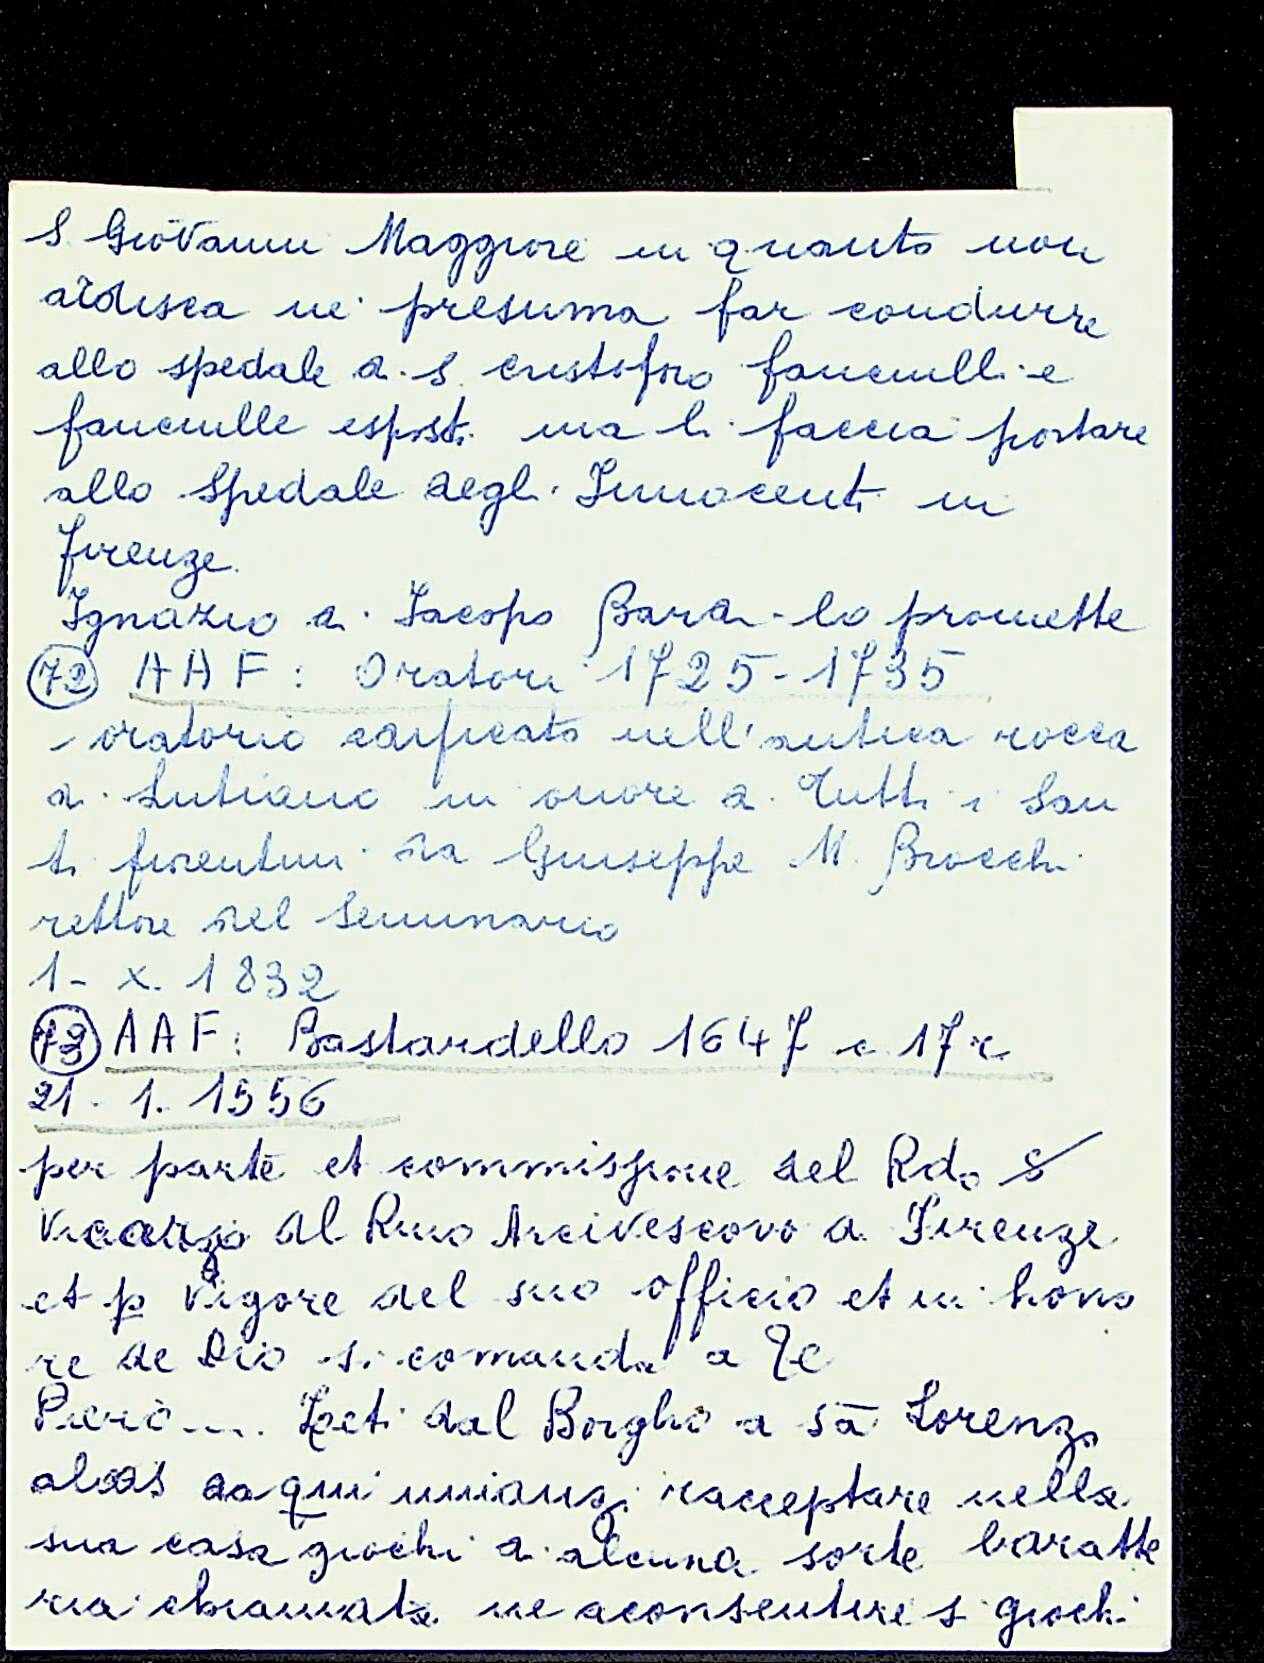 S. Giovanni Maggiore in quanto non
ardisca ne presuma far condurre
allo spedale di S. Cristoforo fanciulli e
fanciulle esposti ma li faccia portare
allo Spedale degli Innocenti in
Firenze.
Ignazio di Jacopo Bardi lo promette
72 AAF: Oratori 1725-1735
- oratorio edificato nell'antica rocca
di Lutiano in onore di Tutti i San
ti fiorentini da Giuseppe M. Brocchi
rettore del Seminario
1- X. 1832
73 AAF: Bastardello 1647 c 17r
21. 1. 1556
per parte et commissione del Rdo S
Vicario del Rmo Arcivescovo di Firenze
et p vigore del suo officio et in hono
re de Dio si comanda a Te
Piero .... dal Borgho a sā Lorenzo
da qui innanzi racceptare nella
sua casa giochi di alcuna sorte baratte
ria chiamata ne aconsentire si giochi